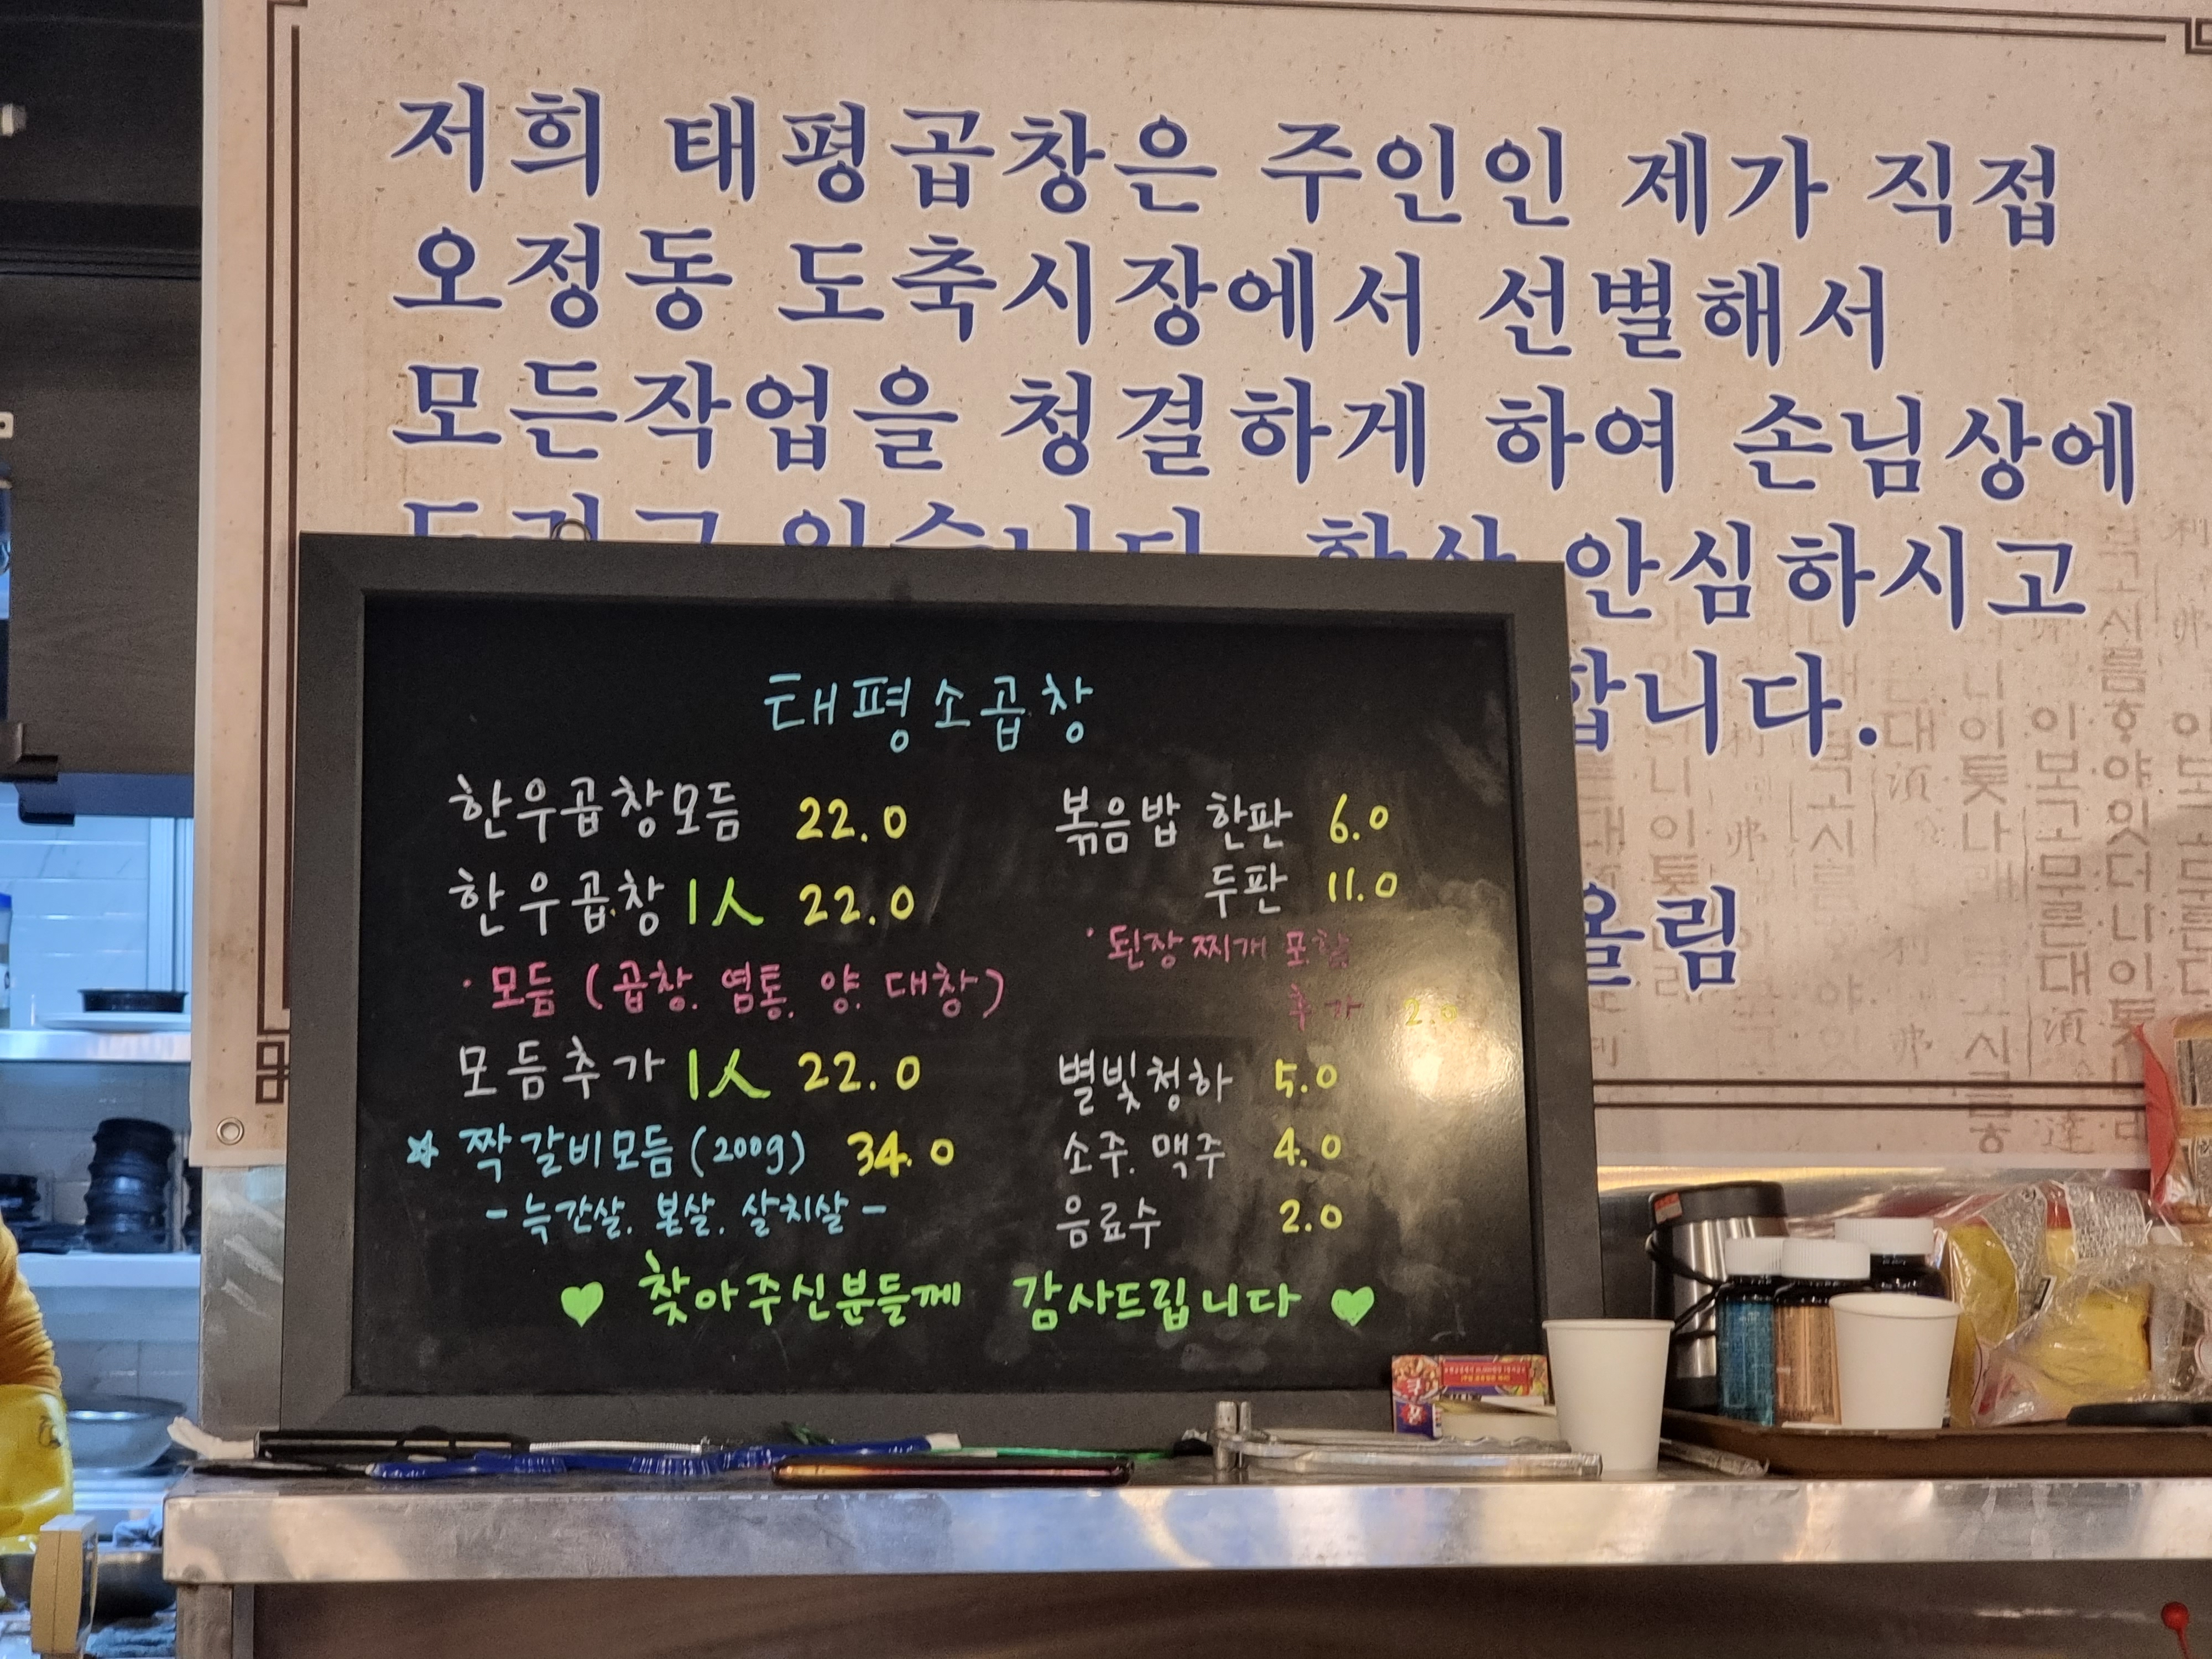 저희 태평곱창은 주인인 제가 직접
오정동 도축시장에서 선별해서
모든작업을 청결하게 하여 손님상에
드리고 있습니다. 항상 안심하시고
합니다.
올림
태평소곱창
한우곱창모듬 22.0
한우곱창 1人 22.0
· 모듬 (곱창. 염통. 양. 대창)
모듬추가 1人 22.0
☆ 짝갈비모듬(200g) 34.0
- 늑간살. 본살. 살치살 -
볶음밥 한판 6.0
두판 11.0
· 된장찌개 포함
추가 2.0
별빛청하 5.0
소주. 맥주 4.0
음료수 2.0
♥ 찾아주신분들께 감사드립니다 ♥